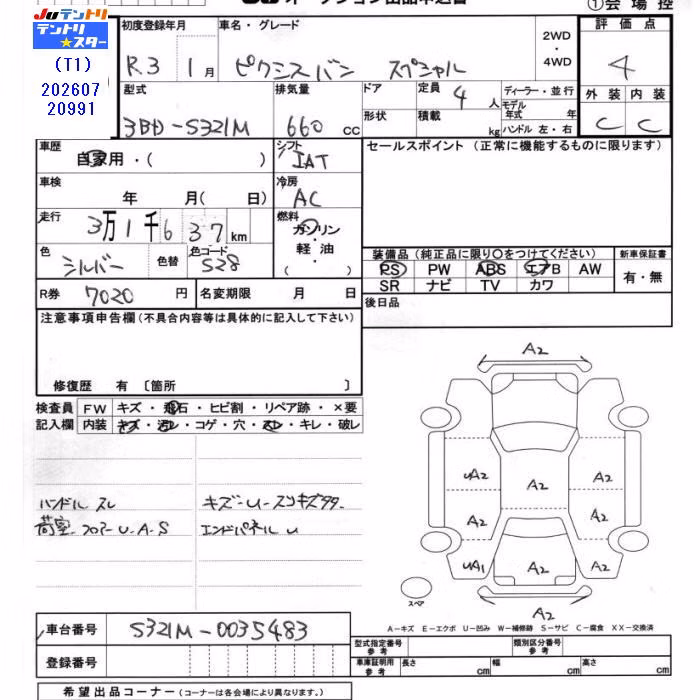 JUテントリ
テントリ★スター
(T1)
202607
20991
①会場控
初度登録年月
R3 1月
車名・グレード
ピクシスバン スペシャル
2WD
・
4WD
評価点
4
型式
3BD-S321M
排気量
660 cc
ドア
形状
定員 4人
積載 kg
ディーラー・並行
モデル年式 年
ハンドル 左・右
外装 内装
C C
車歴
自家用・( )
シフト
IAT
セールスポイント (正常に機能するものに限ります)
車検
年 月( 日)
冷房
AC
走行
3万1千637km
燃料
ガソリン・
軽油・
( )
色
シルバー
色替
色コード
S28
装備品(純正品に限り〇をつけてください)
PS PW ABS エアB AW
SR ナビ TV カワ
新車保証書
有・無
R券 7020円
名変期限 月 日
後日品
注意事項申告欄(不具合内容等は具体的に記入して下さい)
修復歴 有 〔箇所 〕
検査員記入欄
FW キズ・飛石・ヒビ割・リペア跡・×要
内装 キズ・汚レ・コゲ・穴・スレ・キレ・破レ
ハンドル スレ
荷室 フロアーU・A・S
キズ-U-スリキズ多々
エンドパネル U
A2
A2
UA2 A2 A2
A2 A2
UA1 A2 A2
A2
スペア
A-キズ E-エクボ U-凹み W-補修跡 S-サビ C-腐食 XX-交換済
車台番号 S321M-0035483
登録番号
型式指定番号 参考
類別区分番号 参考
車庫証明用 参考
長さ cm 幅 cm 高さ cm
希望出品コーナー(コーナーは各会場により異なります。)